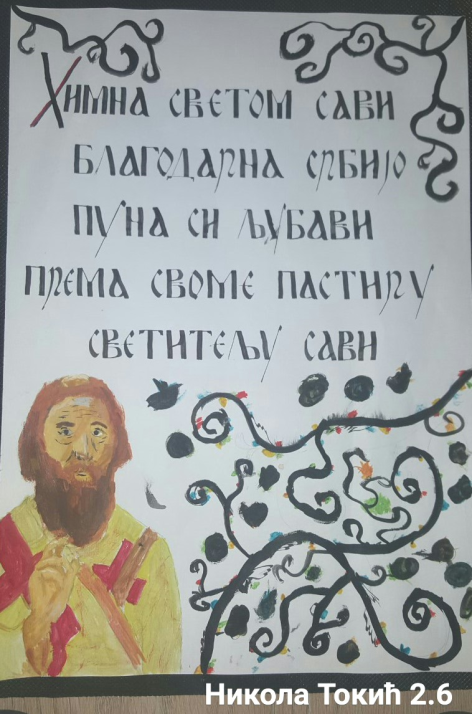 Химна светом сави
благодарна србијо
пуна си љубави
према своме пастиру
светитељу сави
Никола Токић 2.6